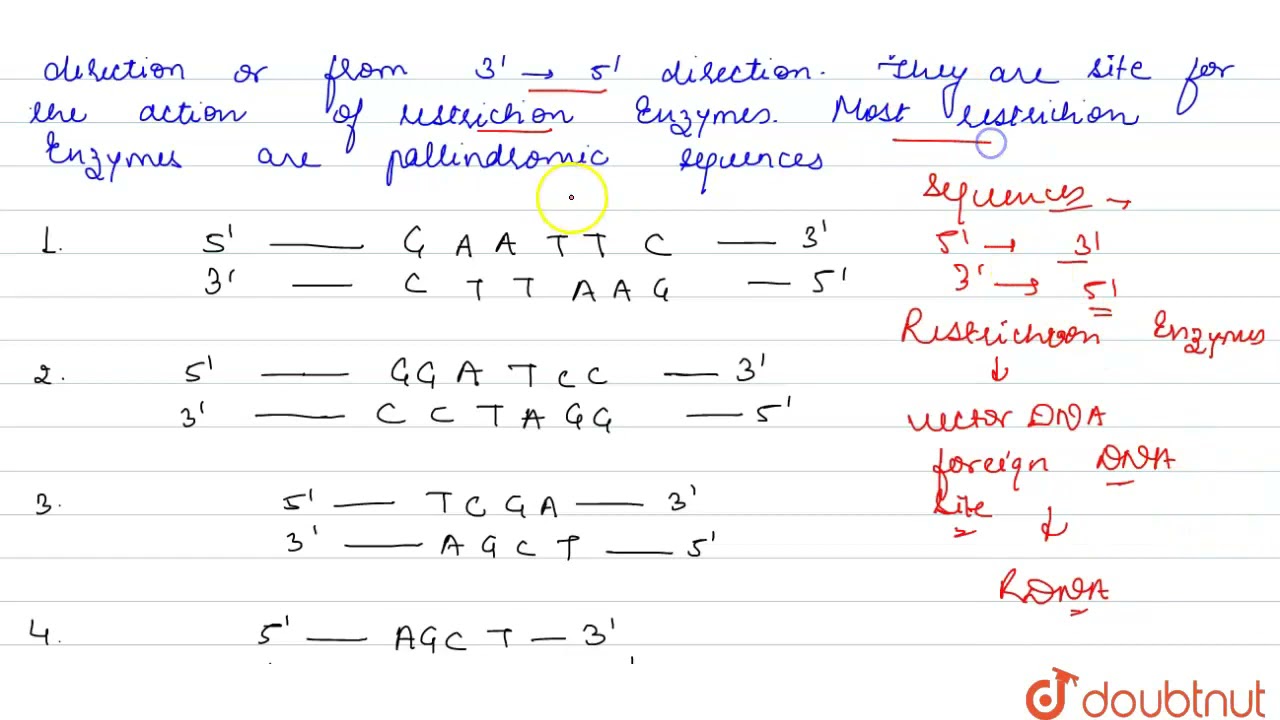 direction or from 3' → 5' direction. They are site for
the action of restriction Enzymes. Most restriction
Enzymes are pallindromic sequences
sequences →
1. 5' — G A A T T C — 3'
3' — C T T A A G — 5'
5' → 3'
3' → 5'
Restriction Enzymes
↓
2. 5' — G G A T C C — 3'
3' — C C T A G G — 5'
vector DNA
foreign DNA
site ↓
3. 5' — T C G A — 3'
3' — A G C T — 5'
RDNA
4. 5' — A G C T — 3'
doubtnut